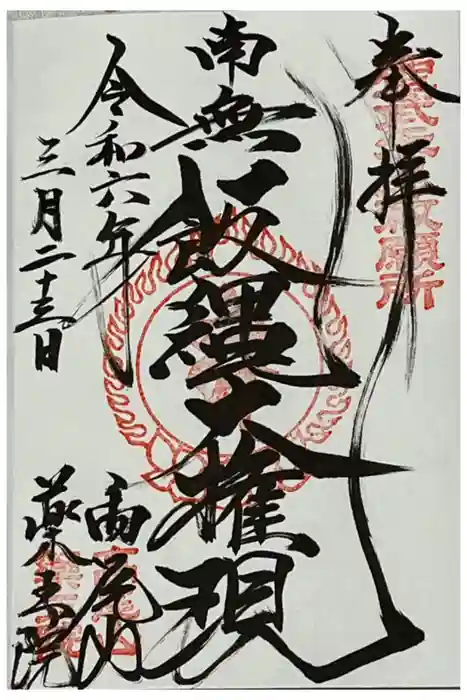 奉拝
南無飯縄大権現
令和六年
三月二十三日
高尾山
薬王院